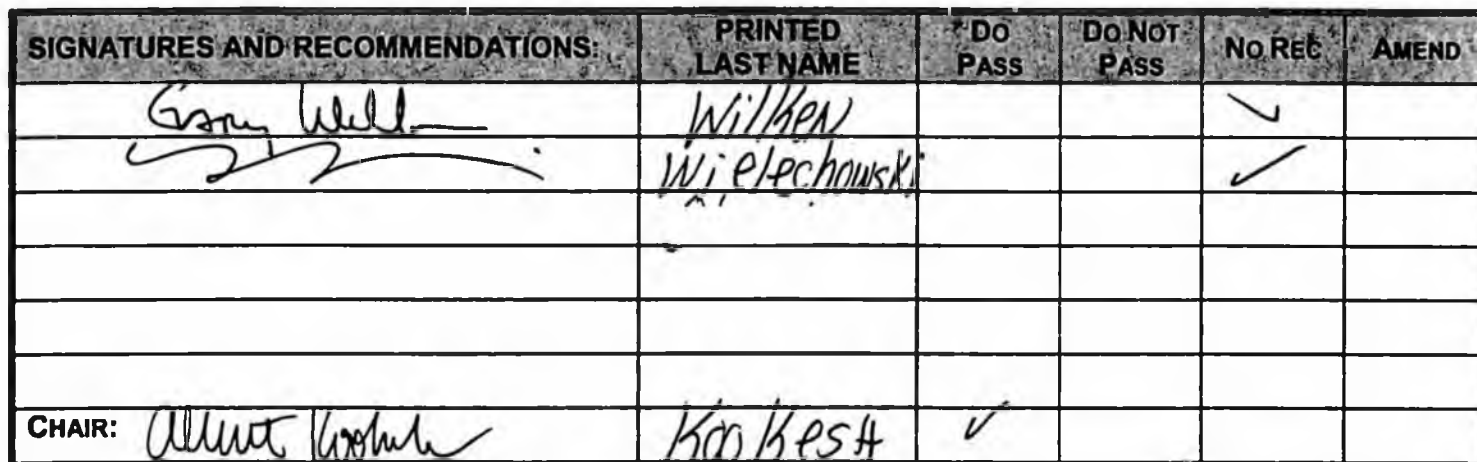 SIGNATURES AND RECOMMENDATIONS: PRINTED LAST NAME DO PASS DO NOT PASS NO REC AMEND
Gary Wilken Wilken ✓
Wielechowski ✓
CHAIR: Albert Kookesh Kookesh ✓